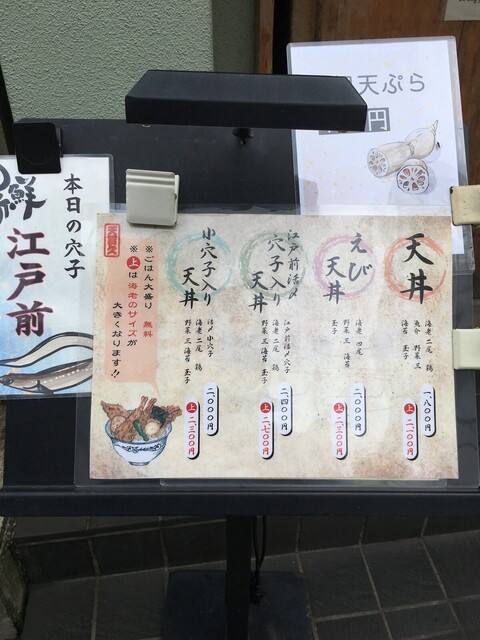 天ぷら
円
本日の穴子
鮮
江戸前
天丼
海老 二尾 鶏
魚介 野菜 三
海苔 玉子
一、八〇〇円
上 二、一〇〇円
えび
天丼
海老 四尾
野菜 三 海苔
玉子
二、〇〇〇円
上 二、三〇〇円
江戸前活〆
穴子入り
天丼
江戸前活〆穴子
海老 二尾 鶏
野菜 三 海苔 玉子
二、四〇〇円
上 二、七〇〇円
小穴子入り
天丼
活〆小穴子
海老 二尾 鶏
野菜 三 海苔 玉子
二、〇〇〇円
上 二、三〇〇円
※ごはん大盛り 無料
※上は海老のサイズが
大きくなります!!